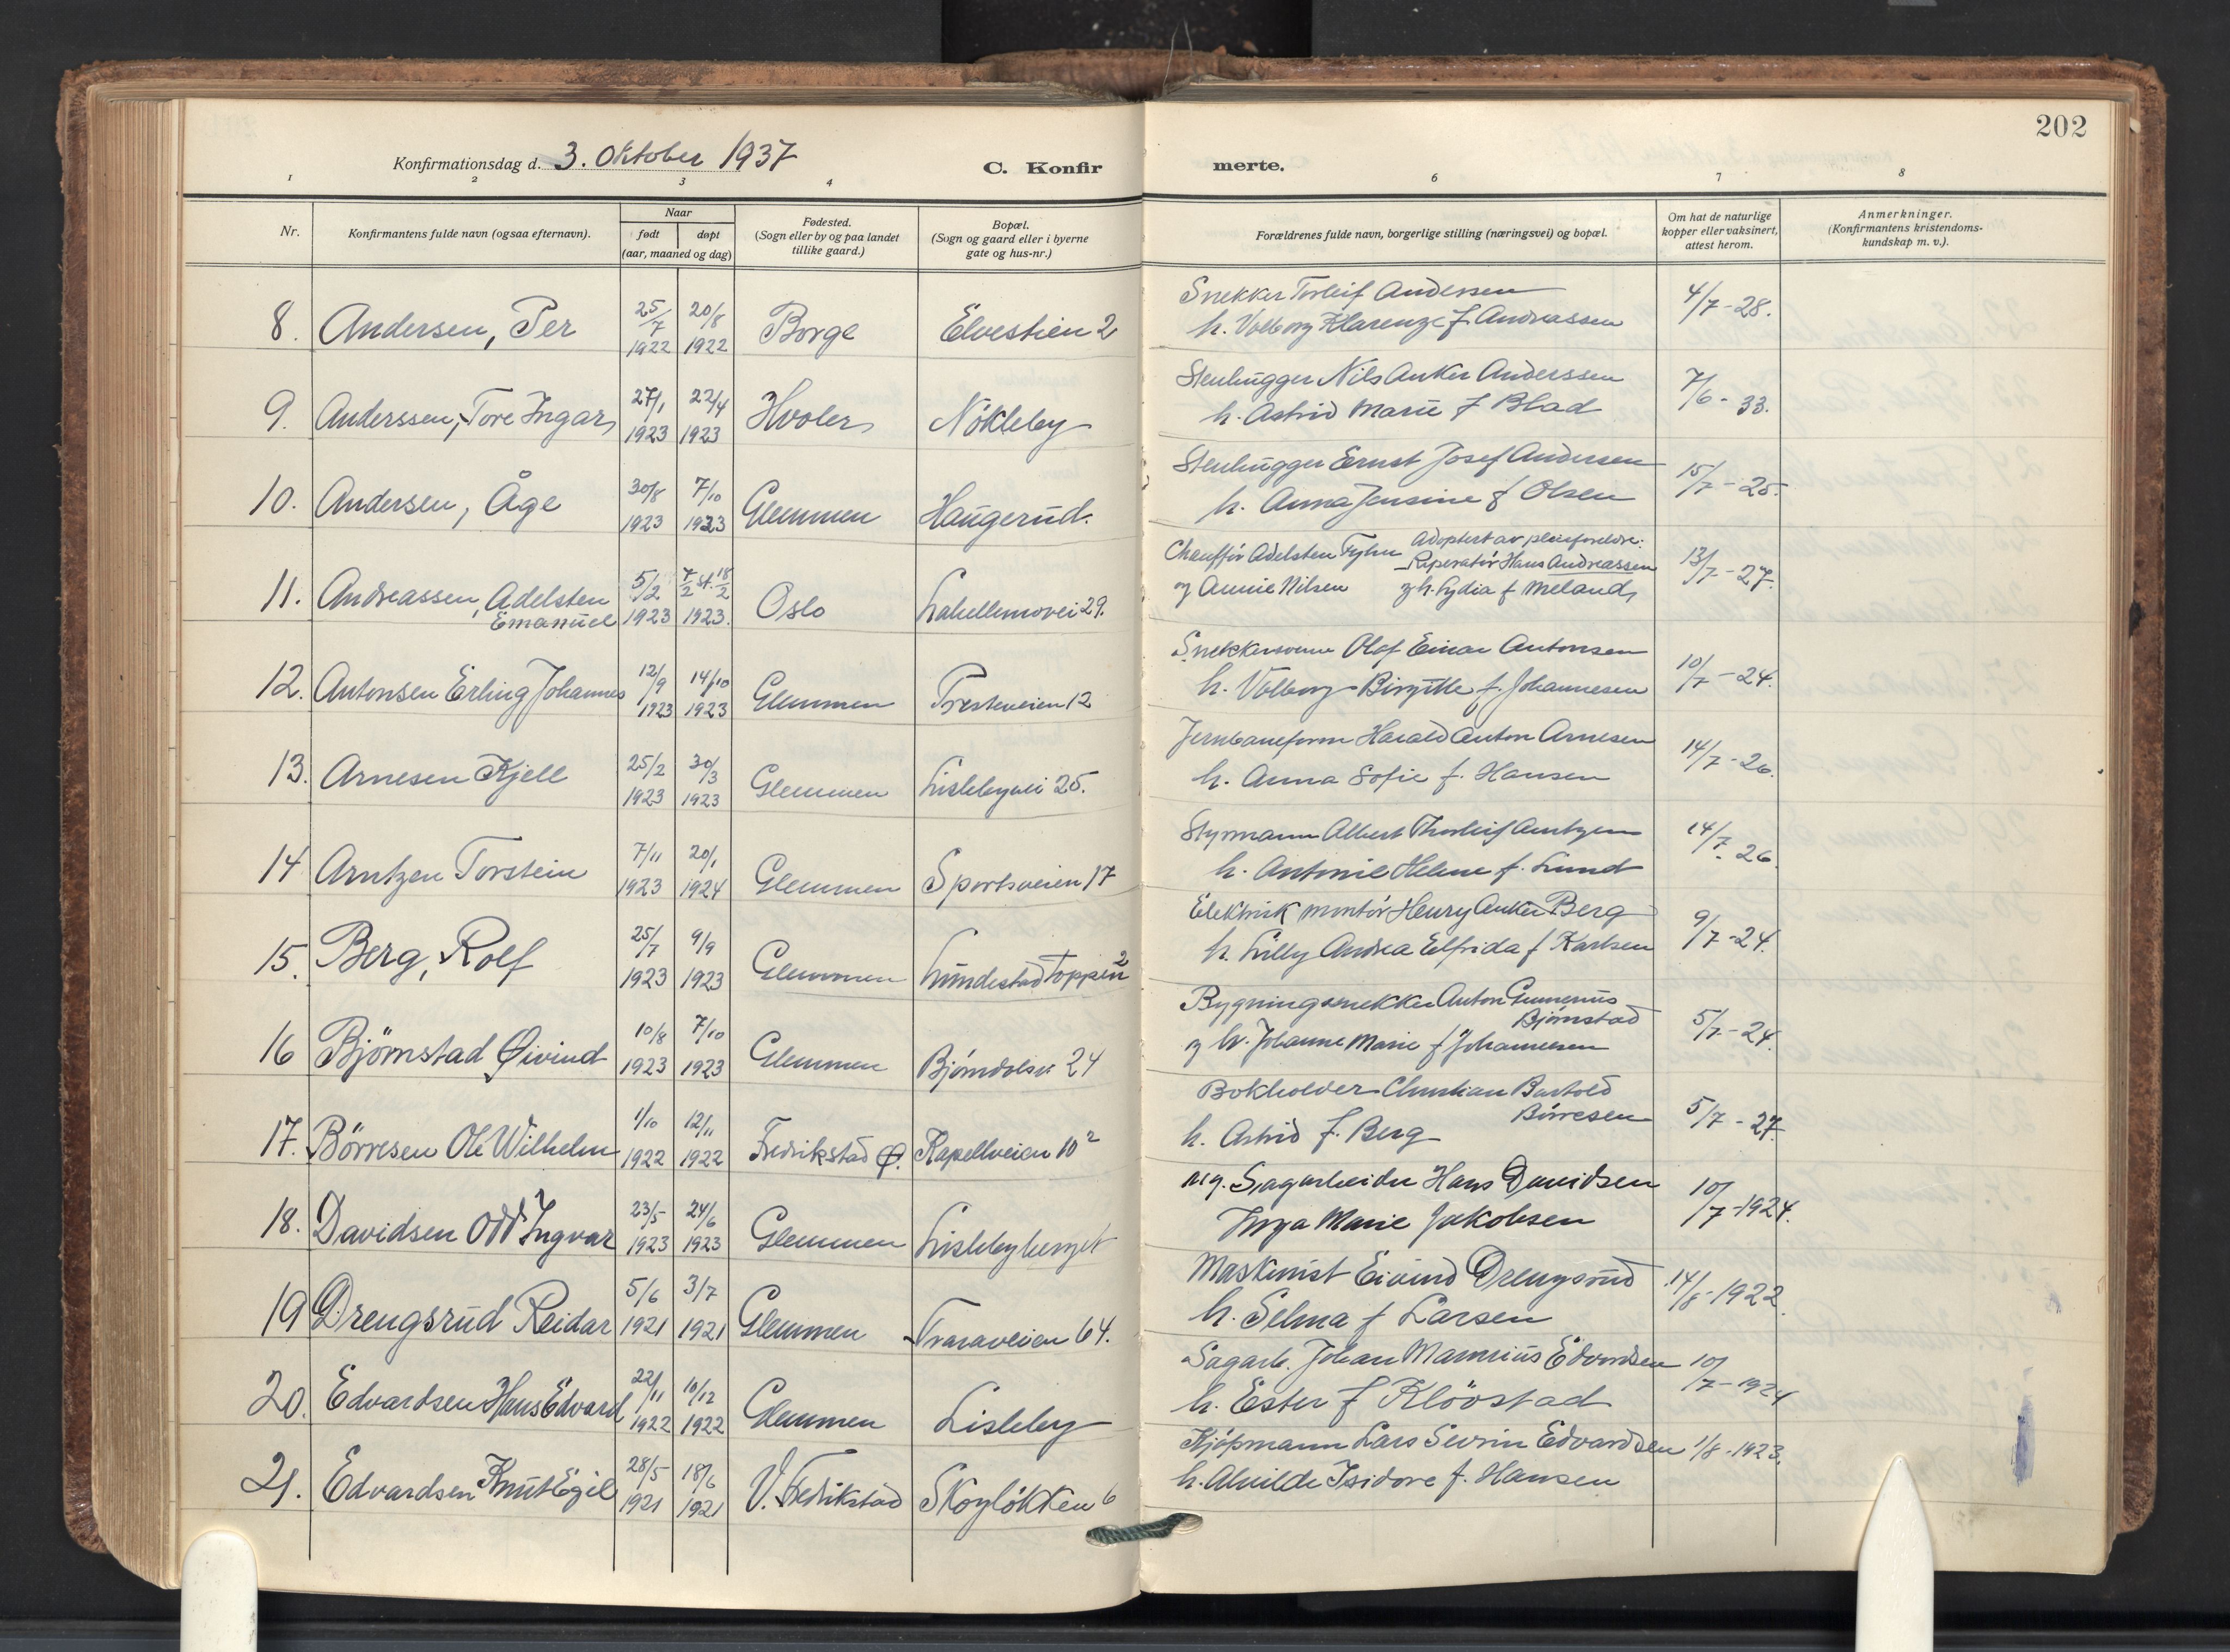 202
Konfirmationsdag d. 3. Oktober 1937
C. Konfir
merte.
1 2 3 4 6 7 8
Nr.
Konfirmantens fulde navn (ogsaa efternavn).
Naar
født døpt
(aar, maaned og dag)
Fødested.
(Sogn eller by og paa landet
tillike gaard.)
Bopæl.
(Sogn og gaard eller i byerne
gate og hus-nr.)
Forældrenes fulde navn, borgerlige stilling (næringsvei) og bopæl.
Om hat de naturlige
kopper eller vaksinert,
attest herom.
Anmerkninger.
(Konfirmantens kristendoms-
kundskap m. v.).
8. Andersen, Per 25/7 1922 20/8 1922 Borge Elvestien 2
Snekker Torleif Andersen 4/7-28.
h. Valborg Klarenze f. Andreassen
9. Anderssen, Tore Ingar 27/1 1923 22/4 1923 Hvaler Nökleby
Stenhugger Nils Anker Anderssen 7/6-33.
h. Astrid Marie f Blad
10. Andersen, Åge 30/8 1923 7/10 1923 Glemmen Haugerud.
Stenhugger Ernst Josef Andersen 15/7-25.
h. Anna Jensine f Olsen
11. Andreassen, Adelsten Emanuel 5/2 1923 7/2 st. 18/2 1923. Oslo Lahellemovei 29.
Chauffør Adelsten Fyhn og Annie Nilsen 13/7-27.
Adoptert av pleieforeldre:
Reperatør Hans Andreassen
og h. Lydia f Meland
12. Antonsen Erling Johannes 12/9 1923 14/10 1923 Glemmen Presteveien 12
Snekkersvenn Olaf Einar Antonsen 10/7-24.
h. Valborg Birgitte f. Johannesen
13. Arnesen Kjell 25/2 1923 30/3 1923 Glemmen Lislebyvei 25.
Jernbaneform Harald Anton Arnesen 14/7-26.
h. Anna Sofie f. Hansen
14 Arntzen Torstein 7/11 1923 20/1 1924 Glemmen Sportsveien 17
Styrmann Albert Thorleif Arntzen 14/7-26.
h. Antonie Helene f. Lund
15. Berg, Rolf 25/7 1923 9/9 1923 Glemmen Lundestadtoppen 2
Elektrisk montör Henry Anker Berg 9/7-24.
h. Lilly Andrea Elfrida f Karlsen
16 Björnstad Øivind 10/8 1923 7/10 1923 Glemmen Bjørndalsv. 24
Bygningssnekker Anton Gunnerius Bjørnstad 5/7-24.
og h. Johanne Marie f Johannesen
17. Börresen Ole Wilhelm 1/10 1922 12/11 1922 Fredrikstad Ø. Kapellveien 10²
Bokholder Christian Bartold Börresen 5/7-27.
h. Astrid f. Berg
18. Davidsen Odd Ingvar 23/5 1923 24/6 1923 Glemmen Lislebyberget
Sagarbeider Hans Davidsen 10/7-1924.
Inga Marie Jakobsen
19 Drengsrud Reidar 5/6 1921 3/7 1921 Glemmen Traraveien 64.
Maskinist Eivind Drengsrud 14/8-1922.
h. Selma f Larsen
20. Edvardsen Hans Edvard 22/11 1922 10/12 1922 Glemmen Lisleby
Sagarb. Johan Edvardsen 10/7-1924
h. Ester f Klövstad
21. Edvardsen Knut Egil 28/5 1921 18/6 1921 V. Fredrikstad Skoglökken 6
Kjöpmann Lars Severin Edvardsen 1/8-1923.
h. Alvilde Isidore f. Hansen